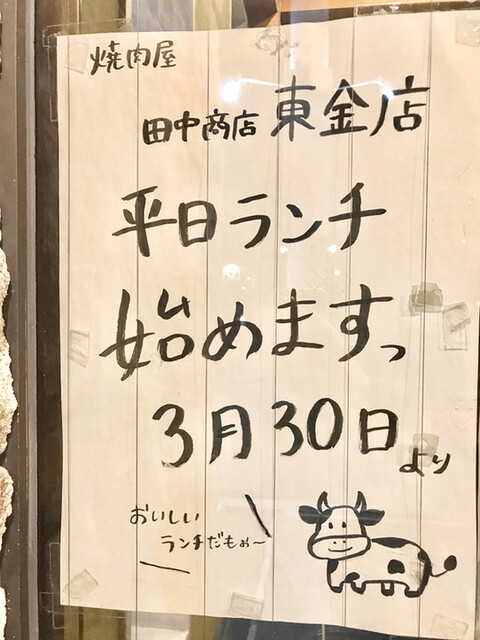 焼肉屋
田中商店 東金店
平日ランチ
始めますっ
3月30日より
おいしい
ランチだもぉ～